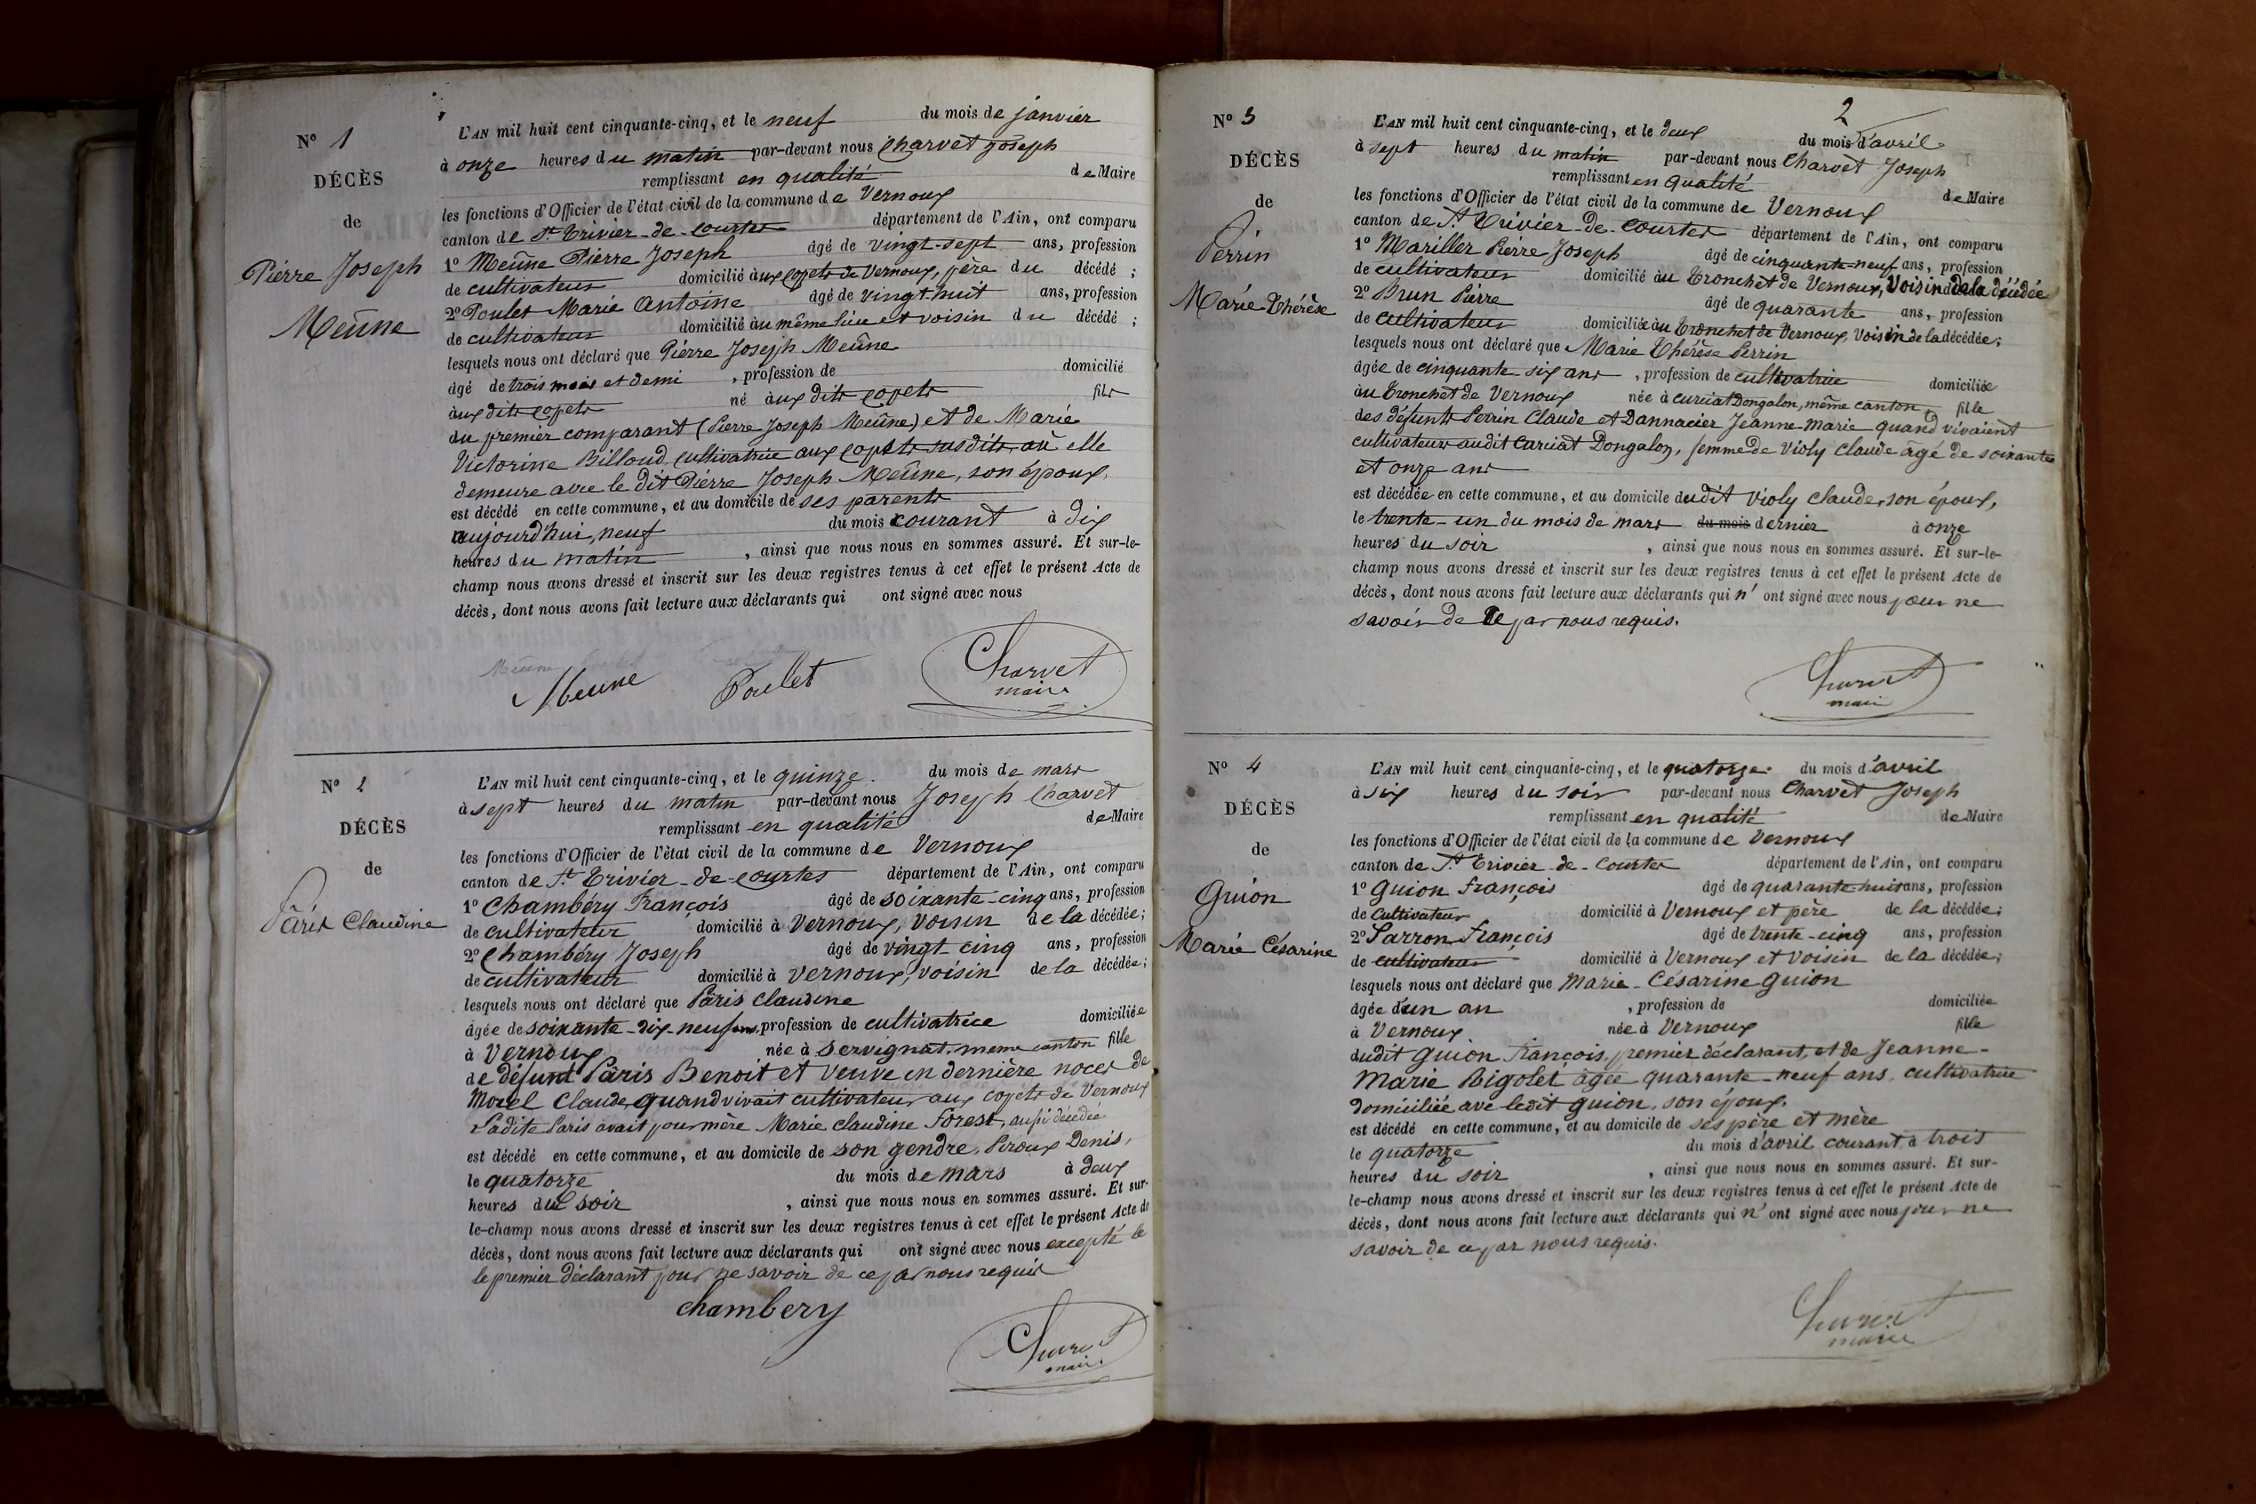 N° 1
DÉCÈS
de
Pierre Joseph
Meûne
L'AN mil huit cent cinquante-cinq, et le neuf du mois de janvier
à onze heures du matin par-devant nous Charvet Joseph
remplissant en qualité de Maire
les fonctions d'Officier de l'état civil de la commune de Vernoux
canton de St Trivier-de-Courtes département de l'Ain, ont comparu
1° Meûne Pierre Joseph âgé de vingt-sept ans, profession
de cultivateur domicilié aux Copets de Vernoux, père du décédé ;
2° Poulet Marie Antoine âgé de vingt-huit ans, profession
de cultivateur domicilié au même lieu et voisin du décédé ;
lesquels nous ont déclaré que Pierre Joseph Meûne
âgé de trois mois et demi , profession de domicilié
aux dits Copets né aux dits Copets fils
du premier comparant (Pierre Joseph Meûne) et de Marie
Victorine Billoud, cultivatrice aux Copets susdits, où elle
demeure avec le dit Pierre Joseph Meûne, son époux,
est décédé en cette commune, et au domicile de ses parents
aujourd'hui, neuf du mois courant à dix
heures du matin , ainsi que nous nous en sommes assuré. Et sur-le-
champ nous avons dressé et inscrit sur les deux registres tenus à cet effet le présent Acte de
décès, dont nous avons fait lecture aux déclarants qui ont signé avec nous
Meune Poulet Charvet
maire
N° 2
DÉCÈS
de
Pâris Claudine
L'AN mil huit cent cinquante-cinq, et le quinze du mois de mars
à sept heures du matin par-devant nous Joseph Charvet
remplissant en qualité de Maire
les fonctions d'Officier de l'état civil de la commune de Vernoux
canton de St Trivier-de-Courtes département de l'Ain, ont comparu
1° Chambéry François âgé de soixante-cinq ans, profession
de cultivateur domicilié à Vernoux, voisin de la décédée ;
2° Chambéry Joseph âgé de vingt-cinq ans, profession
de cultivateur domicilié à Vernoux, voisin de la décédée ;
lesquels nous ont déclaré que Pâris Claudine
âgée de soixante-dix-neuf ans, profession de cultivatrice domiciliée
à Vernoux née à Servignat, même canton fille
de défunt Pâris Benoit et veuve en dernière noces de
Morel Claude, quand vivait cultivateur aux Copets de Vernoux
Ladite Paris avait pour mère Marie Claudine Forest, aussi décédée
est décédé en cette commune, et au domicile de son gendre, Piroux Denis,
le quatorze du mois de mars à deux
heures du soir , ainsi que nous nous en sommes assuré. Et sur-
le-champ nous avons dressé et inscrit sur les deux registres tenus à cet effet le présent Acte de
décès, dont nous avons fait lecture aux déclarants qui ont signé avec nous excepté le
le premier déclarant pour ne savoir de ce par nous requis
chambery
Charvet
maire
2
N° 3
DÉCÈS
de
Perrin
Marie Thérèse
L'AN mil huit cent cinquante-cinq, et le deux du mois d'avril
à sept heures du matin par-devant nous Charvet Joseph
remplissant en qualité de Maire
les fonctions d'Officier de l'état civil de la commune de Vernoux
canton de St Trivier-de-Courtes département de l'Ain, ont comparu
1° Mariller Pierre Joseph âgé de cinquante-neuf ans, profession
de cultivateur domicilié au Tronchet de Vernoux, voisin de la décédée
2° Brun Pierre âgé de quarante ans, profession
de cultivateur domicilié au Tronchet de Vernoux, voisin de la décédée ;
lesquels nous ont déclaré que Marie Thérèse Perrin
âgée de cinquante six ans , profession de cultivatrice domiciliée
au Tronchet de Vernoux née à Curciat Dongalon, même canton, fille
des défunts Perrin Claude et Dannacier Jeanne-Marie quand vivaient
cultivateurs audit Curciat Dongalon, femme de Violy Claude âgé de soixante
et onze ans
est décédée en cette commune, et au domicile dudit Violy Claude, son époux,
le trente-un du mois de mars du mois dernier à onze
heures du soir , ainsi que nous nous en sommes assuré. Et sur-le-
champ nous avons dressé et inscrit sur les deux registres tenus à cet effet le présent Acte de
décès, dont nous avons fait lecture aux déclarants qui n'ont signé avec nous pour ne
savoir de ce par nous requis.
Charvet
maire
N° 4
DÉCÈS
de
Guion
Marie Césarine
L'AN mil huit cent cinquante-cinq, et le quatorze du mois d'avril
à six heures du soir par-devant nous Charvet Joseph
remplissant en qualité de Maire
les fonctions d'Officier de l'état civil de la commune de Vernoux
canton de St Trivier-de-Courtes département de l'Ain, ont comparu
1° Guion François âgé de quarante-huit ans, profession
de cultivateur domicilié à Vernoux et père de la décédée ;
2° Sarron François âgé de trente-cinq ans, profession
de cultivateur domicilié à Vernoux et voisin de la décédée ;
lesquels nous ont déclaré que Marie-Césarine Guion
âgée d'un an , profession de domiciliée
à Vernoux née à Vernoux fille
dudit Guion François, premier déclarant, et de Jeanne-
Marie Rigolet âgée quarante-neuf ans, cultivatrice
domiciliée avec ledit Guion, son époux.
est décédé en cette commune, et au domicile de ses père et mère
le quatorze du mois d'avril courant à trois
heures du soir , ainsi que nous nous en sommes assuré. Et sur-
le-champ nous avons dressé et inscrit sur les deux registres tenus à cet effet le présent Acte de
décès, dont nous avons fait lecture aux déclarants qui n'ont signé avec nous pour ne
savoir de ce par nous requis.
Charvet
maire